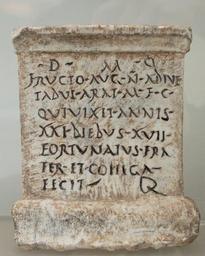 D M
FRVCTO·AVG·N·ADIV
TABVL·A·RAT·M·F·C
QVI VIXIT·ANNIS
XXI·DIEBVS·XVII
FORTVNATVS·FRA
TER·ET·CONIGA
FECIT